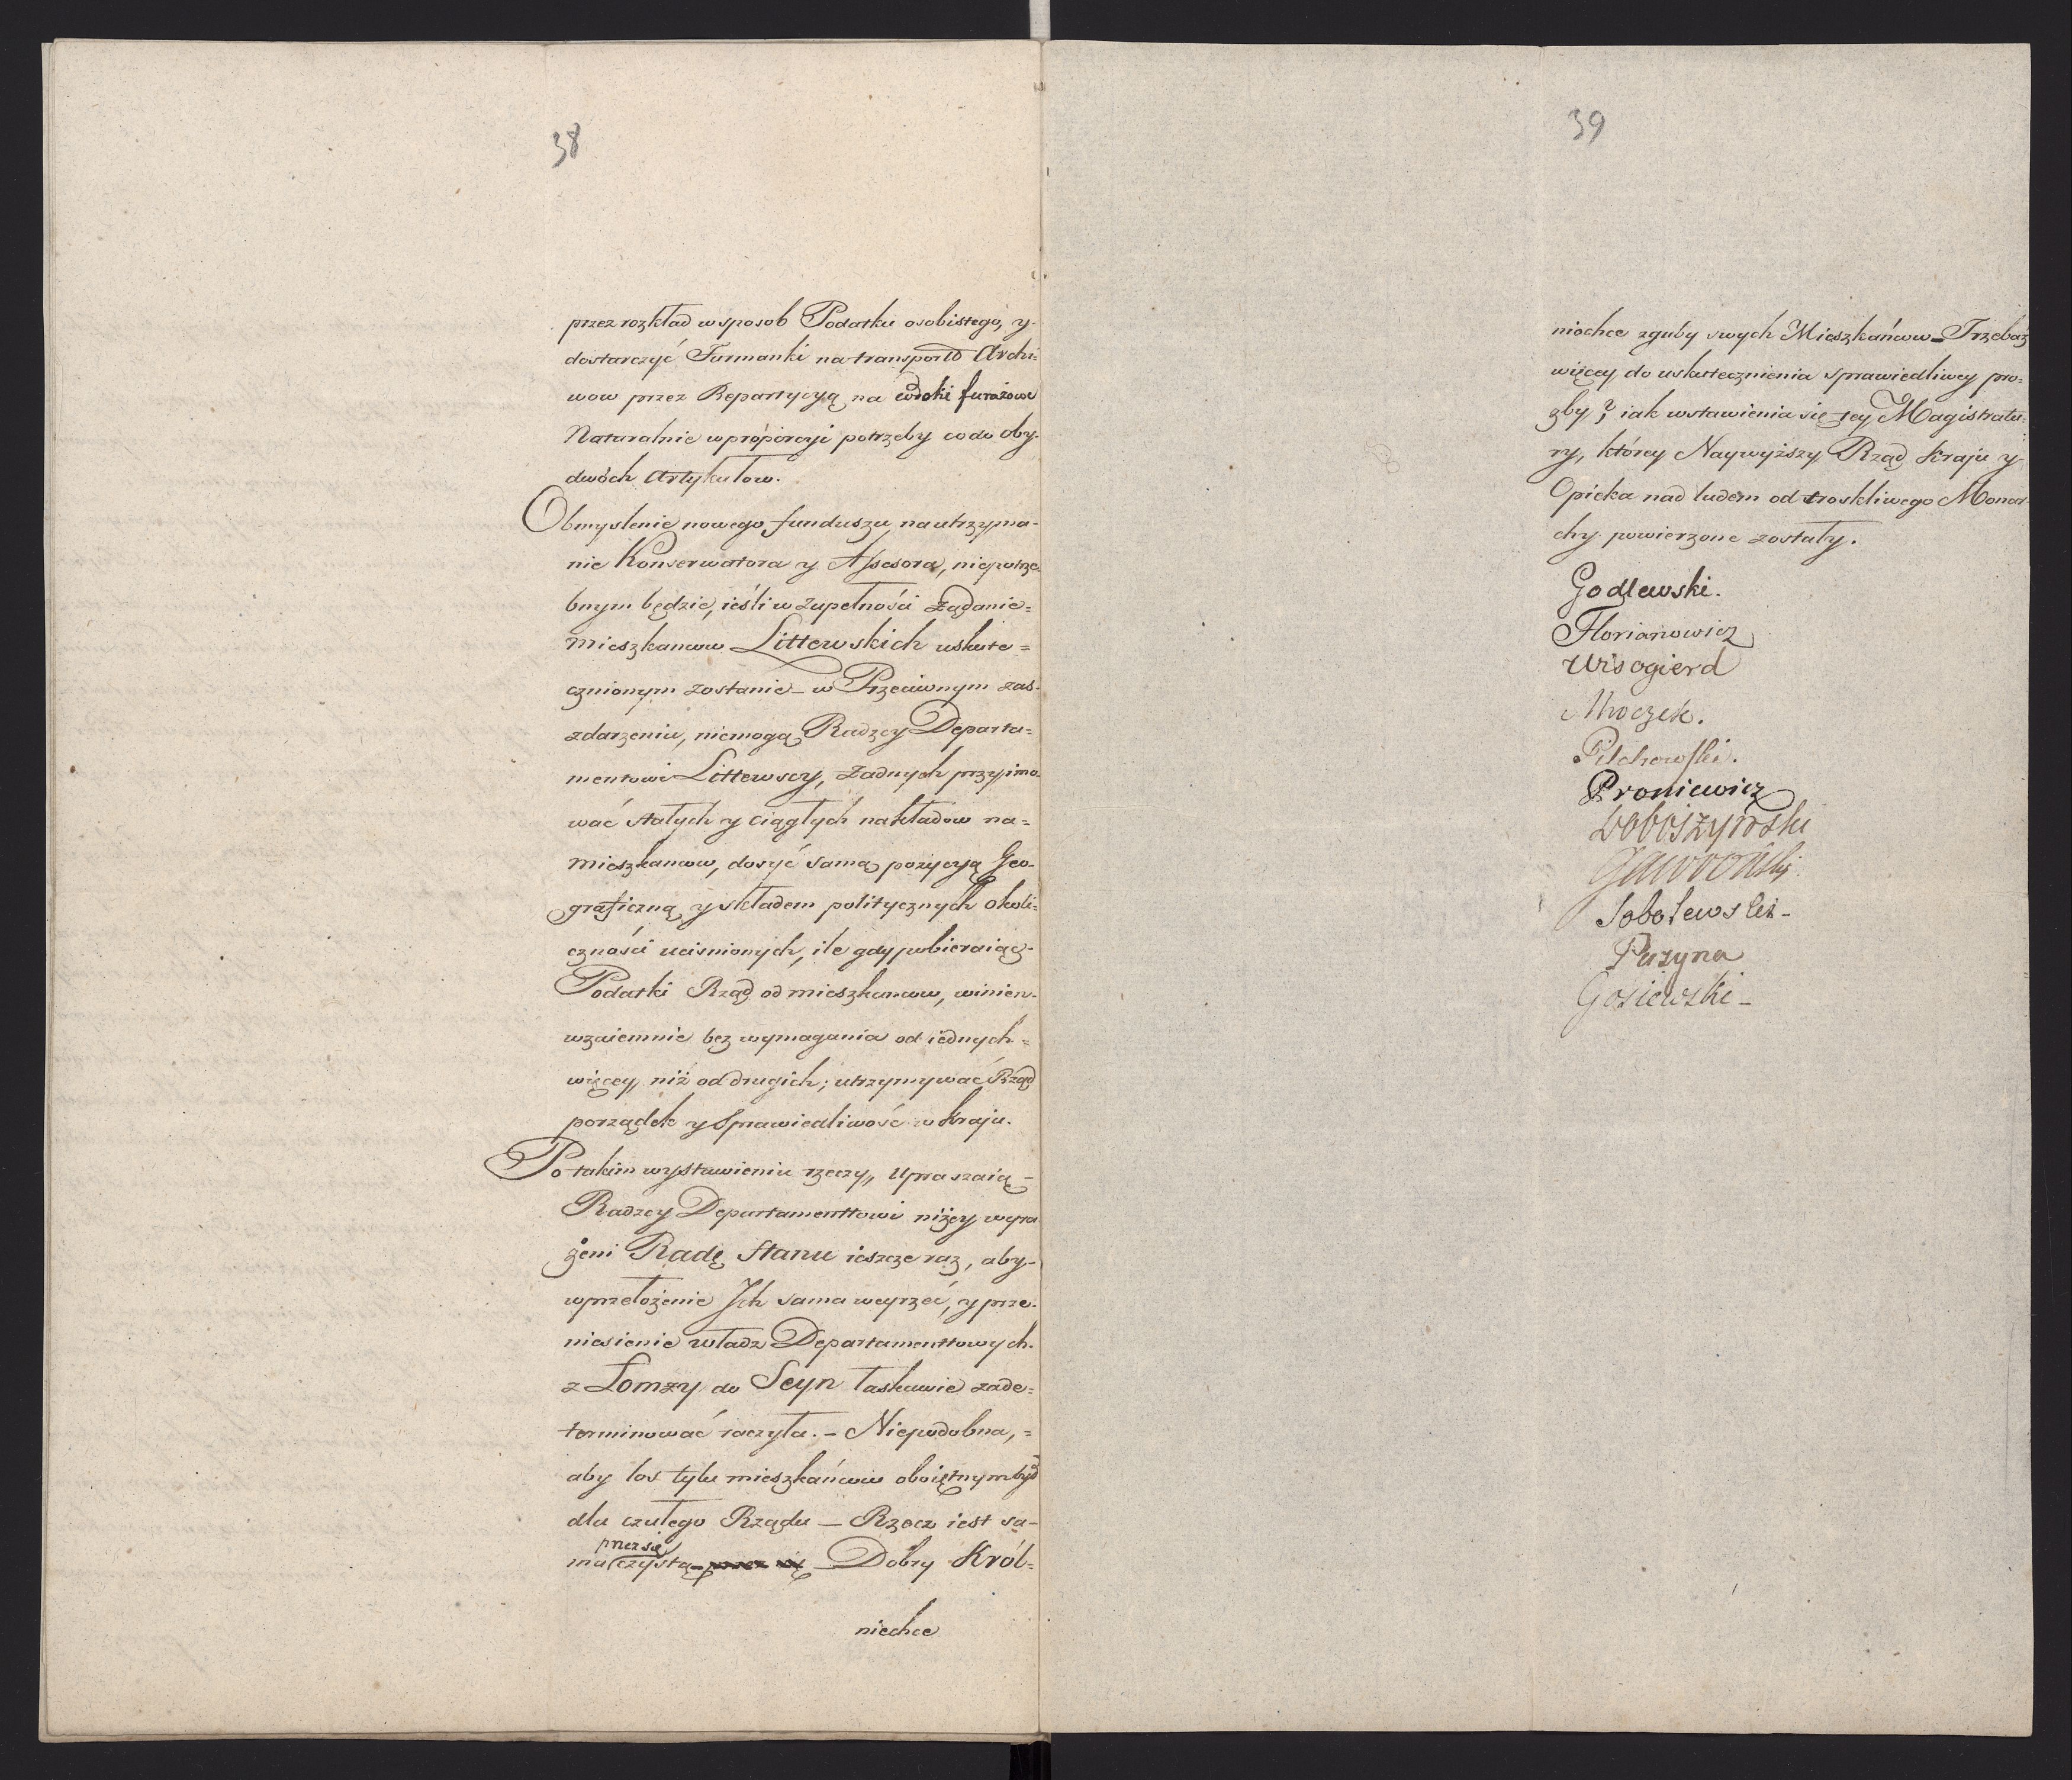 38
przez rozkład wsposob Podatku osobistego, y
dostarczyć Furmanki na transport Archi=
wow przez Repartycyą na włoki furażowe
Naturalnie wproporcyi potrzeby co do oby-
dwóch Artykułow.
Obmyslenie nowego funduszu na utrzyma-
nie Konserwatora y Assesora, niepotrze
bnym będzie, ieśli w zupełności żądanie=
mieszkancow Littewskich uskute=
cznionym zostanie_ w Przeciwnym zas-
zdarzeniu, niemogą Radzcy Departa=
mentowi Littewscy, żadnych przyimo-
wać stałych y ciągłych nakładow na=
mieszkancow, dosyć samą pozycyą Geo-
graficzną y składem politycznych okoli=
czności ucisnionych, ile gdy pobieraiąc-
Podatki Rząd od mieszkancow, winien-
wzaiemnie bez wymagania od iednych=
więcey, niż od drugich; utrzymywać Rząd
porządek y Sprawiedliwość w Kraju.
Po takim wystawieniu rzeczy,, upraszaią_
Radzcy Departamenttowi niżey wyra
żeni Radę Stanu ieszcze raz, aby-
wprzełożenie Ich sama weyrzeć, y prze-
niesienie władz Departamenttowych-
z Łomzy do Seyn łaskawie zade=
terminować raczyła._ Niepodobna,=
aby los tylu mieszkańcow oboiętnym był
dla czułego Rządu_ Rzecz iest sa-
przez się
ma czystą_ przez się _ Dobry Król=
niechce
39
niechce zguby swych Mieszkańcow_ Trzebaż
więcey do uskutecznienia sprawiedliwey pro=
zby? iak wstawienia się tey Magistratu=
ry, którey Naywyższy Rząd Kraju y
Opieka nad ludem od troskliwego Monar-
chy powierzone zostały.
Godlewski.
Florianowicz
Wisogierd
Mroczek.
Pilchowski.
Proniewicz
Doboszyński
Jaworoński
Sobolewski_
Puzyna
Gosiewski_